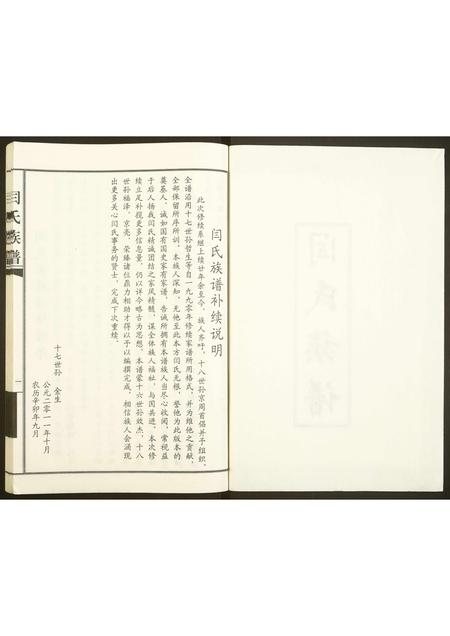 闫氏族谱补续说明
此次修续系继上续廿年余至今，族人齐呼，十八世孙京周首倡并予组织。
全谱沿用十七世孙哲生等自一九九〇年修续家谱所用格式，并为维他之贡献，
全部保留所序所训，本族人深知，无他至此本方闫氏无根，誉他为此版本的
奠基人，诚如国有国史家有家谱，告诫所拥有本谱族人当尽心收阅，常视益
于后人扬我闫氏精诚团结之家风精髓，谋全体族人福祉，与国共进，本次修
续立足补揽更多信息量，仍以详今略古为思想，本谱蒙十六世孙效杰，十八
世孙福泽，京亮，荣臻诸位鼎力相助才得以予以编撰完成，相信族人会涌现
出更多关心闫氏事务的贤士，完成下次重续。
十七世孙 金生
公元二零一一年十月
农历辛卯年九月
闫氏族谱
一
闫氏族谱